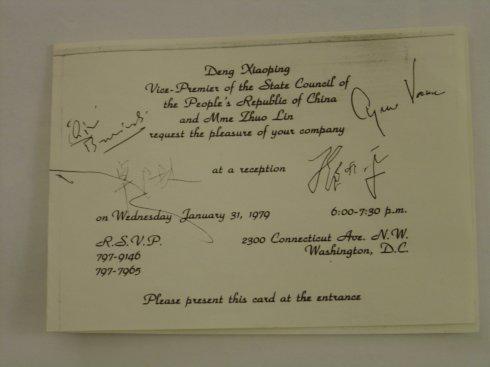 Deng Xiaoping
Vice-Premier of the State Council of
the People's Republic of China
and Mme Zhuo Lin
request the pleasure of your company
at a reception
on Wednesday January 31, 1979 6:00-7:30 p.m.
R.S.V.P. 2300 Connecticut Ave. N.W.
797-9146 Washington, D.C.
797-7965
Please present this card at the entrance